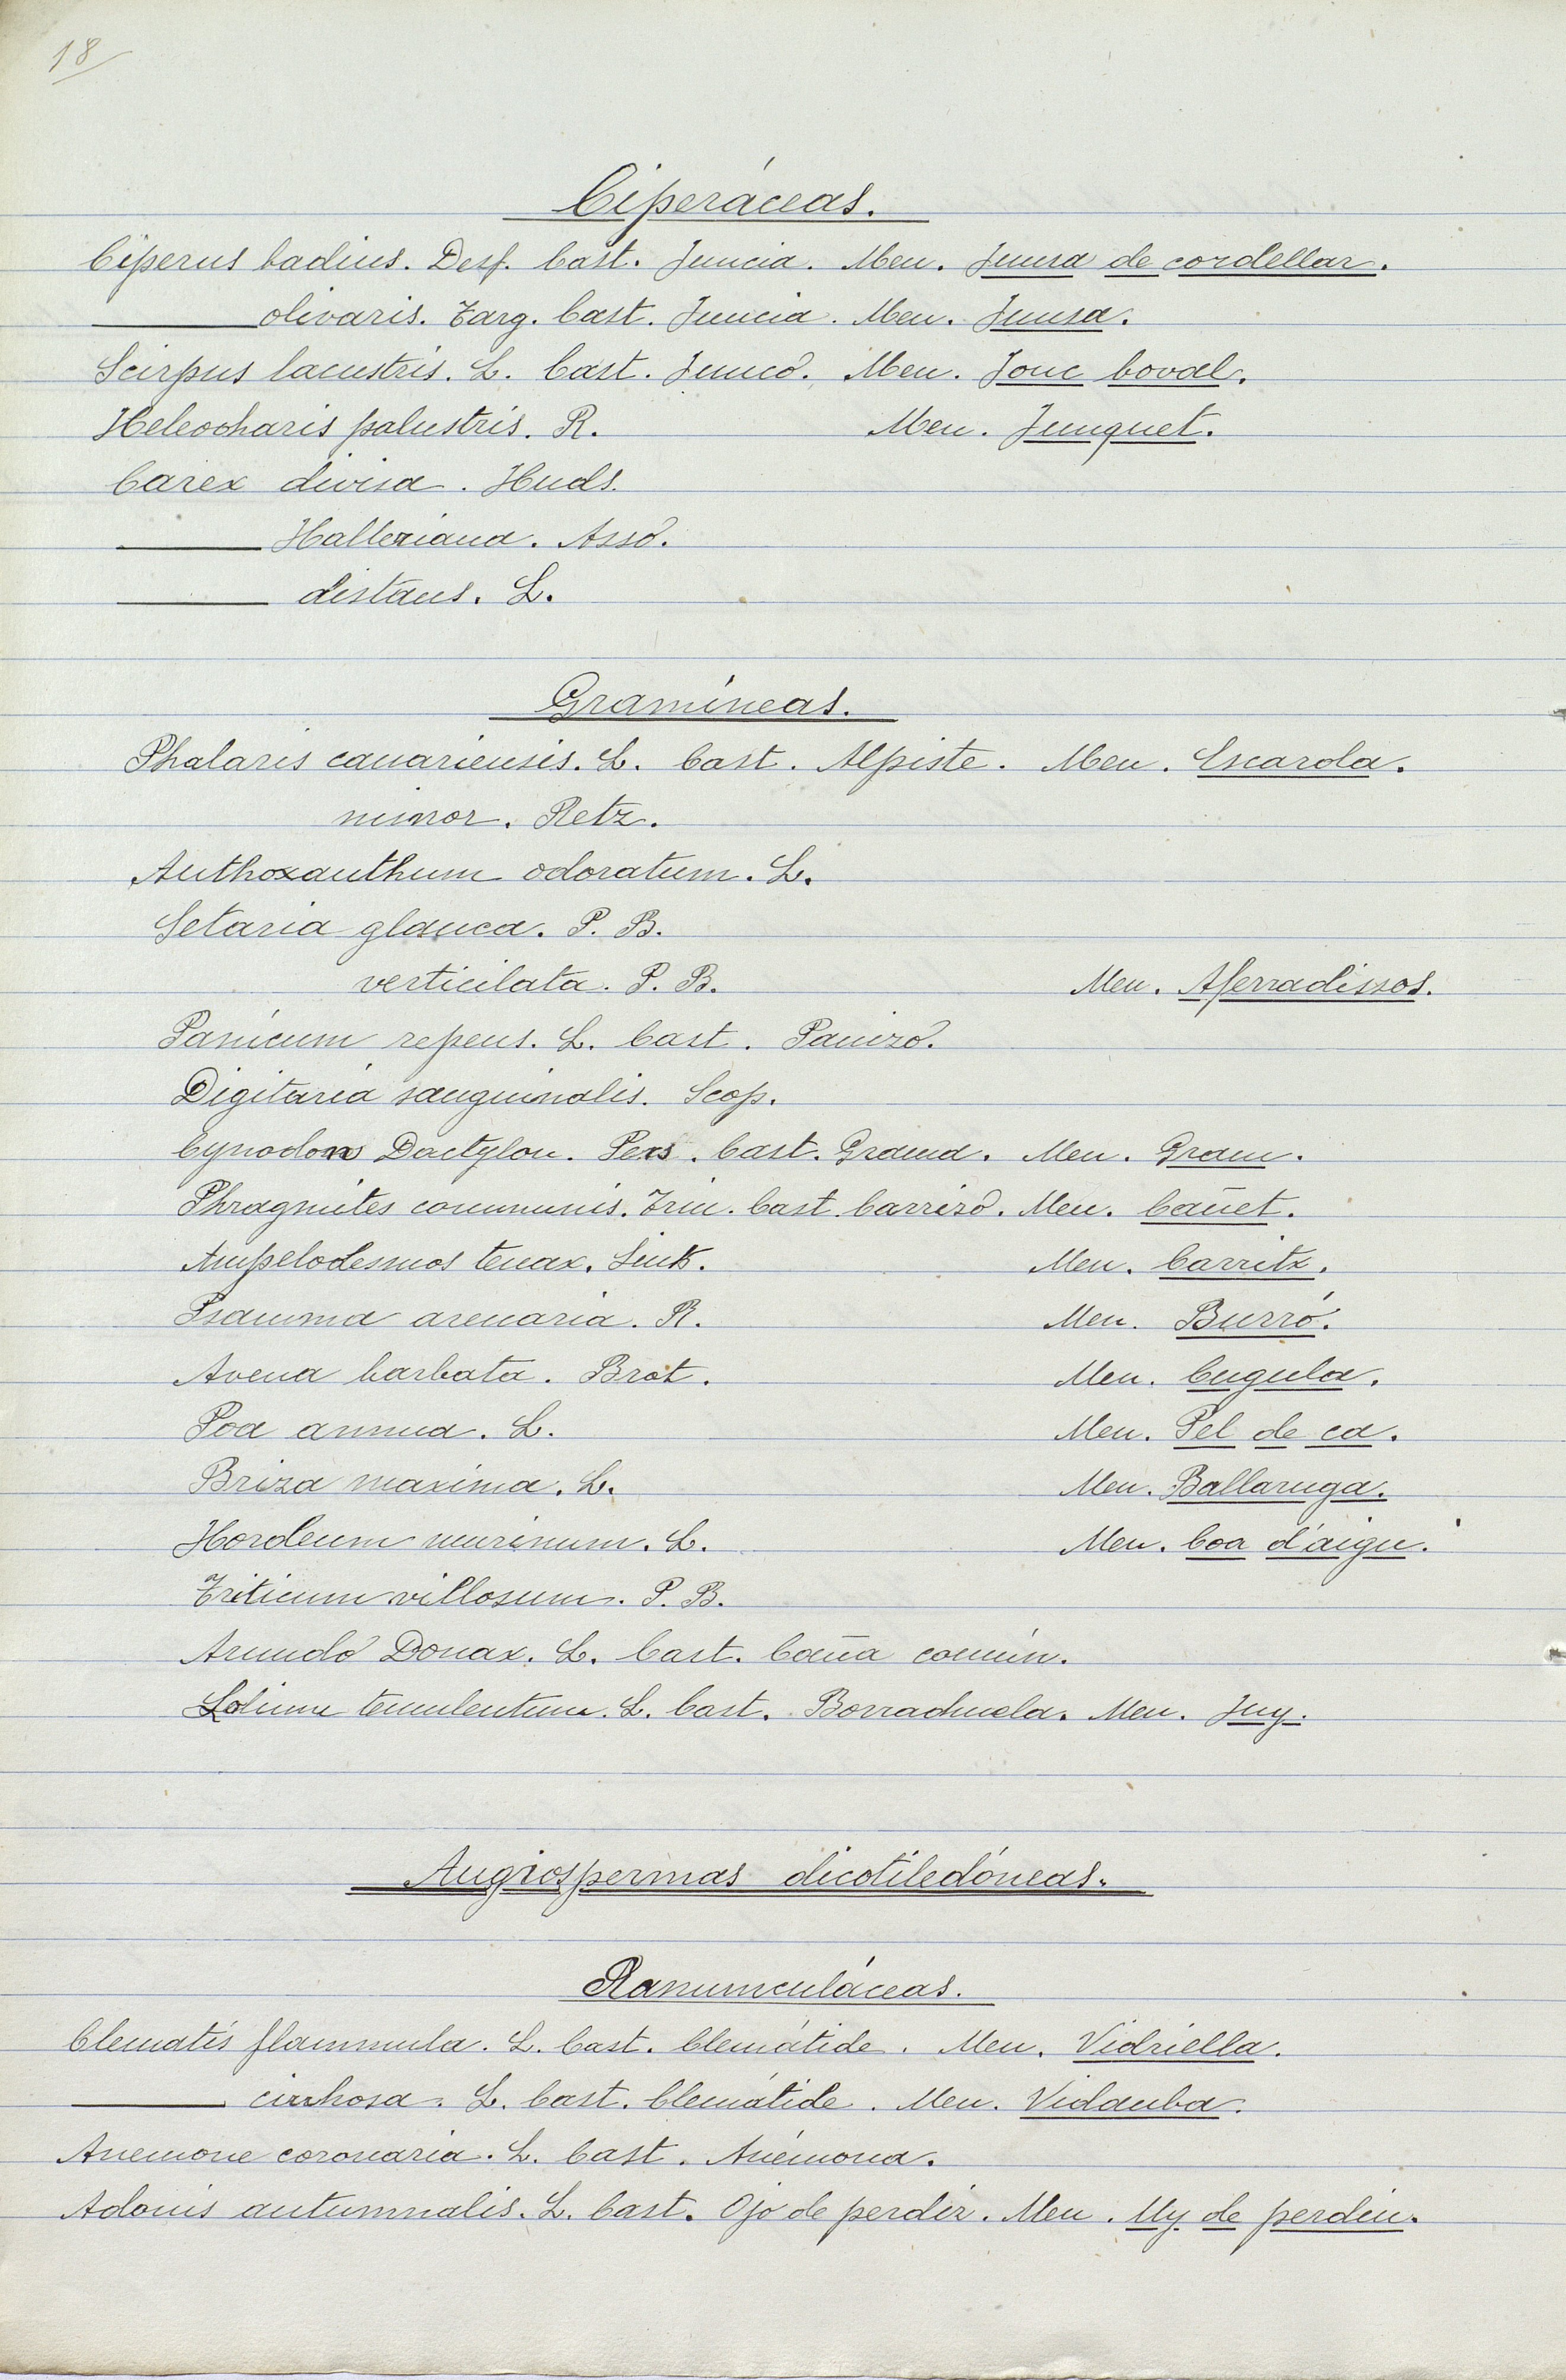 18
Ciperáceas.
Ciperus badius. Desf. Cast. Juncia. Men. Junsa de cordellar.
olivaris. Targ. Cast. Juncia. Men. Junsa.
Scirpus lacustris. L. Cast. Junco. Men. Jonc boval.
Heleocharis palustris. R. Men. Junquet.
Carex divisa. Huds.
Halleriana. Asso.
distans. L.
Gramíneas.
Phalaris canariensis. L. Cast. Alpiste. Men. Escarola.
minor. Retz.
Anthoxanthum odoratum. L.
Setaria glauca. P. B.
verticilata. P. B. Men. Aferradissos.
Panicum repens. L. Cast. Panizo.
Digitaria sanguinalis. Scop.
Cynodon Dactylon. Pers. Cast. Grama. Men. Gram.
Phragmites communis. Trin. Cast. Carrizo. Men. Cañet.
Ampelodesmos tenax. Link. Men. Carritx.
Psamma arenaria. R. Men. Burró.
Avena barbata. Brot. Men. Cugula.
Poa annua. L. Men. Pel de ca.
Briza maxima. L. Men. Ballaruga.
Hordeum murinum. L. Men. Coa d'aigu.
Triticum villosum. P. B.
Arundo Donax. L. Cast. Caña común.
Lolium temulentum. L. Cast. Borrachuela. Men. Juy.
Angiospermas dicotiledóneas.
Ranunculáceas.
Clematis flammula. L. Cast. Clemátide. Men. Vidriella.
cirrhosa. L. Cast. Clemátide. Men. Vidauba.
Anemone coronaria. L. Cast. Anémona.
Adonis autumnalis. L. Cast. Ojo de perdiz. Men. Uy de perdiu.